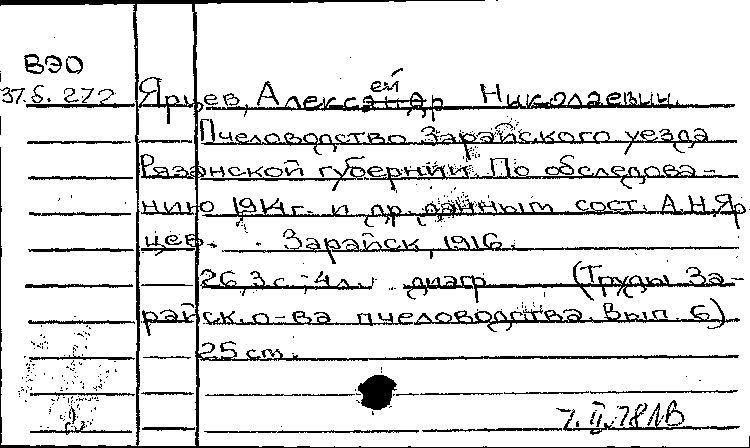 ВЭО
37.6.272 Ярцев, Александр ей Николаевич.
Пчеловодство Зарайского уезда
Рязанской губернии. По обследова-
нию 1914г. и др. данным сост. А.Н.Яр
цев. Зарайск, 1916.
26,3 с.; 4 л. диагр (Труды За-
райск. о-ва пчеловодства. Вып. 6)
25 cm.
7.II.78